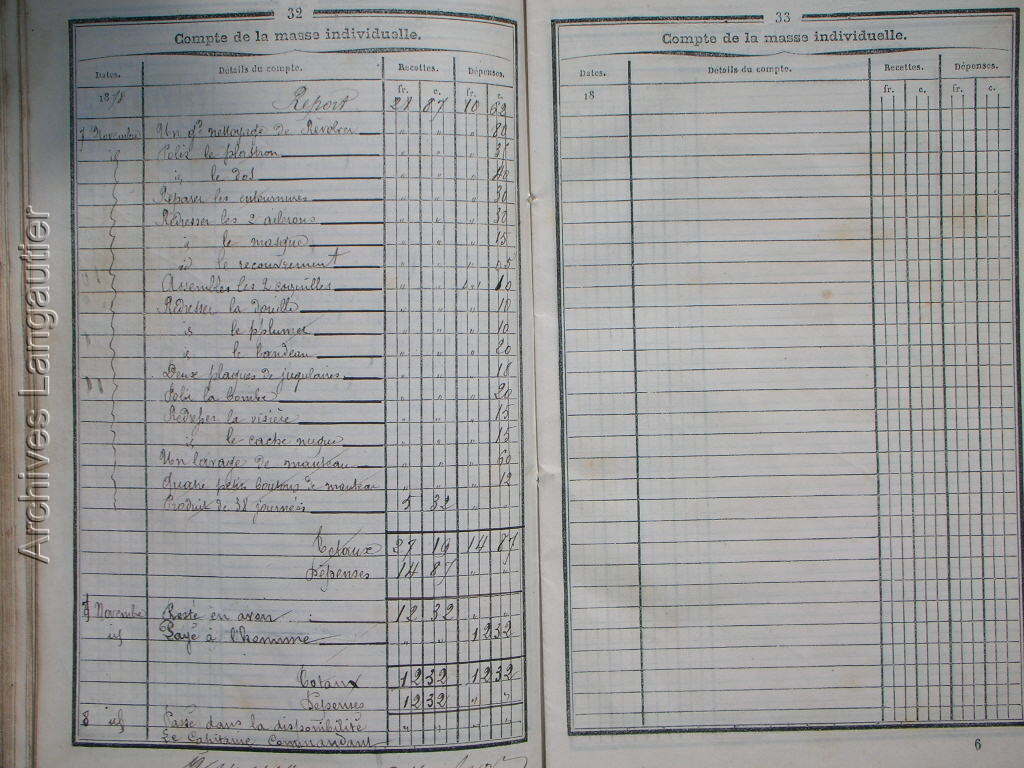 32
Compte de la masse individuelle.
Dates. Détails du compte. Recettes. Dépenses.
fr. c. fr. c.
18 Report 87 10 52
7 Novembre Un gd nettoyage de Revolver " " " 80
id Polir le plastron " " "
id le dos " " "
Réparer les entournures " " " 30
Redresser les 2 ailerons " " " 30
id le masque " " " 15
id le recouvrement " " "
Assembler les 2 coquilles " " " 10
Redresser la douille " " " 10
id le plumet " " " 10
id le bandeau " " " 20
Deux plaques de jugulaires " " " 18
Polir la bombe " " " 20
Redresser la visière " " " 15
id le cache nuque " " " 15
Un lavage de manteau " " " 60
Quatre petits boutons de manteau " " " 12
Produit de 38 journées 5 32 " "
Totaux 27 19 14 87
Dépenses 14 87 " "
Novembre Reste en avoir : 12 32 " "
id Payé à l'homme " " 12 32
Totaux 12 32 12 32
Dépenses 12 32 " "
8 id Passé dans la disponibilité " " " "
Le Capitaine Commandant
33
Compte de la masse individuelle.
Dates. Détails du compte. Recettes. Dépenses.
fr. c. fr. c.
18
6
Archives Langautier